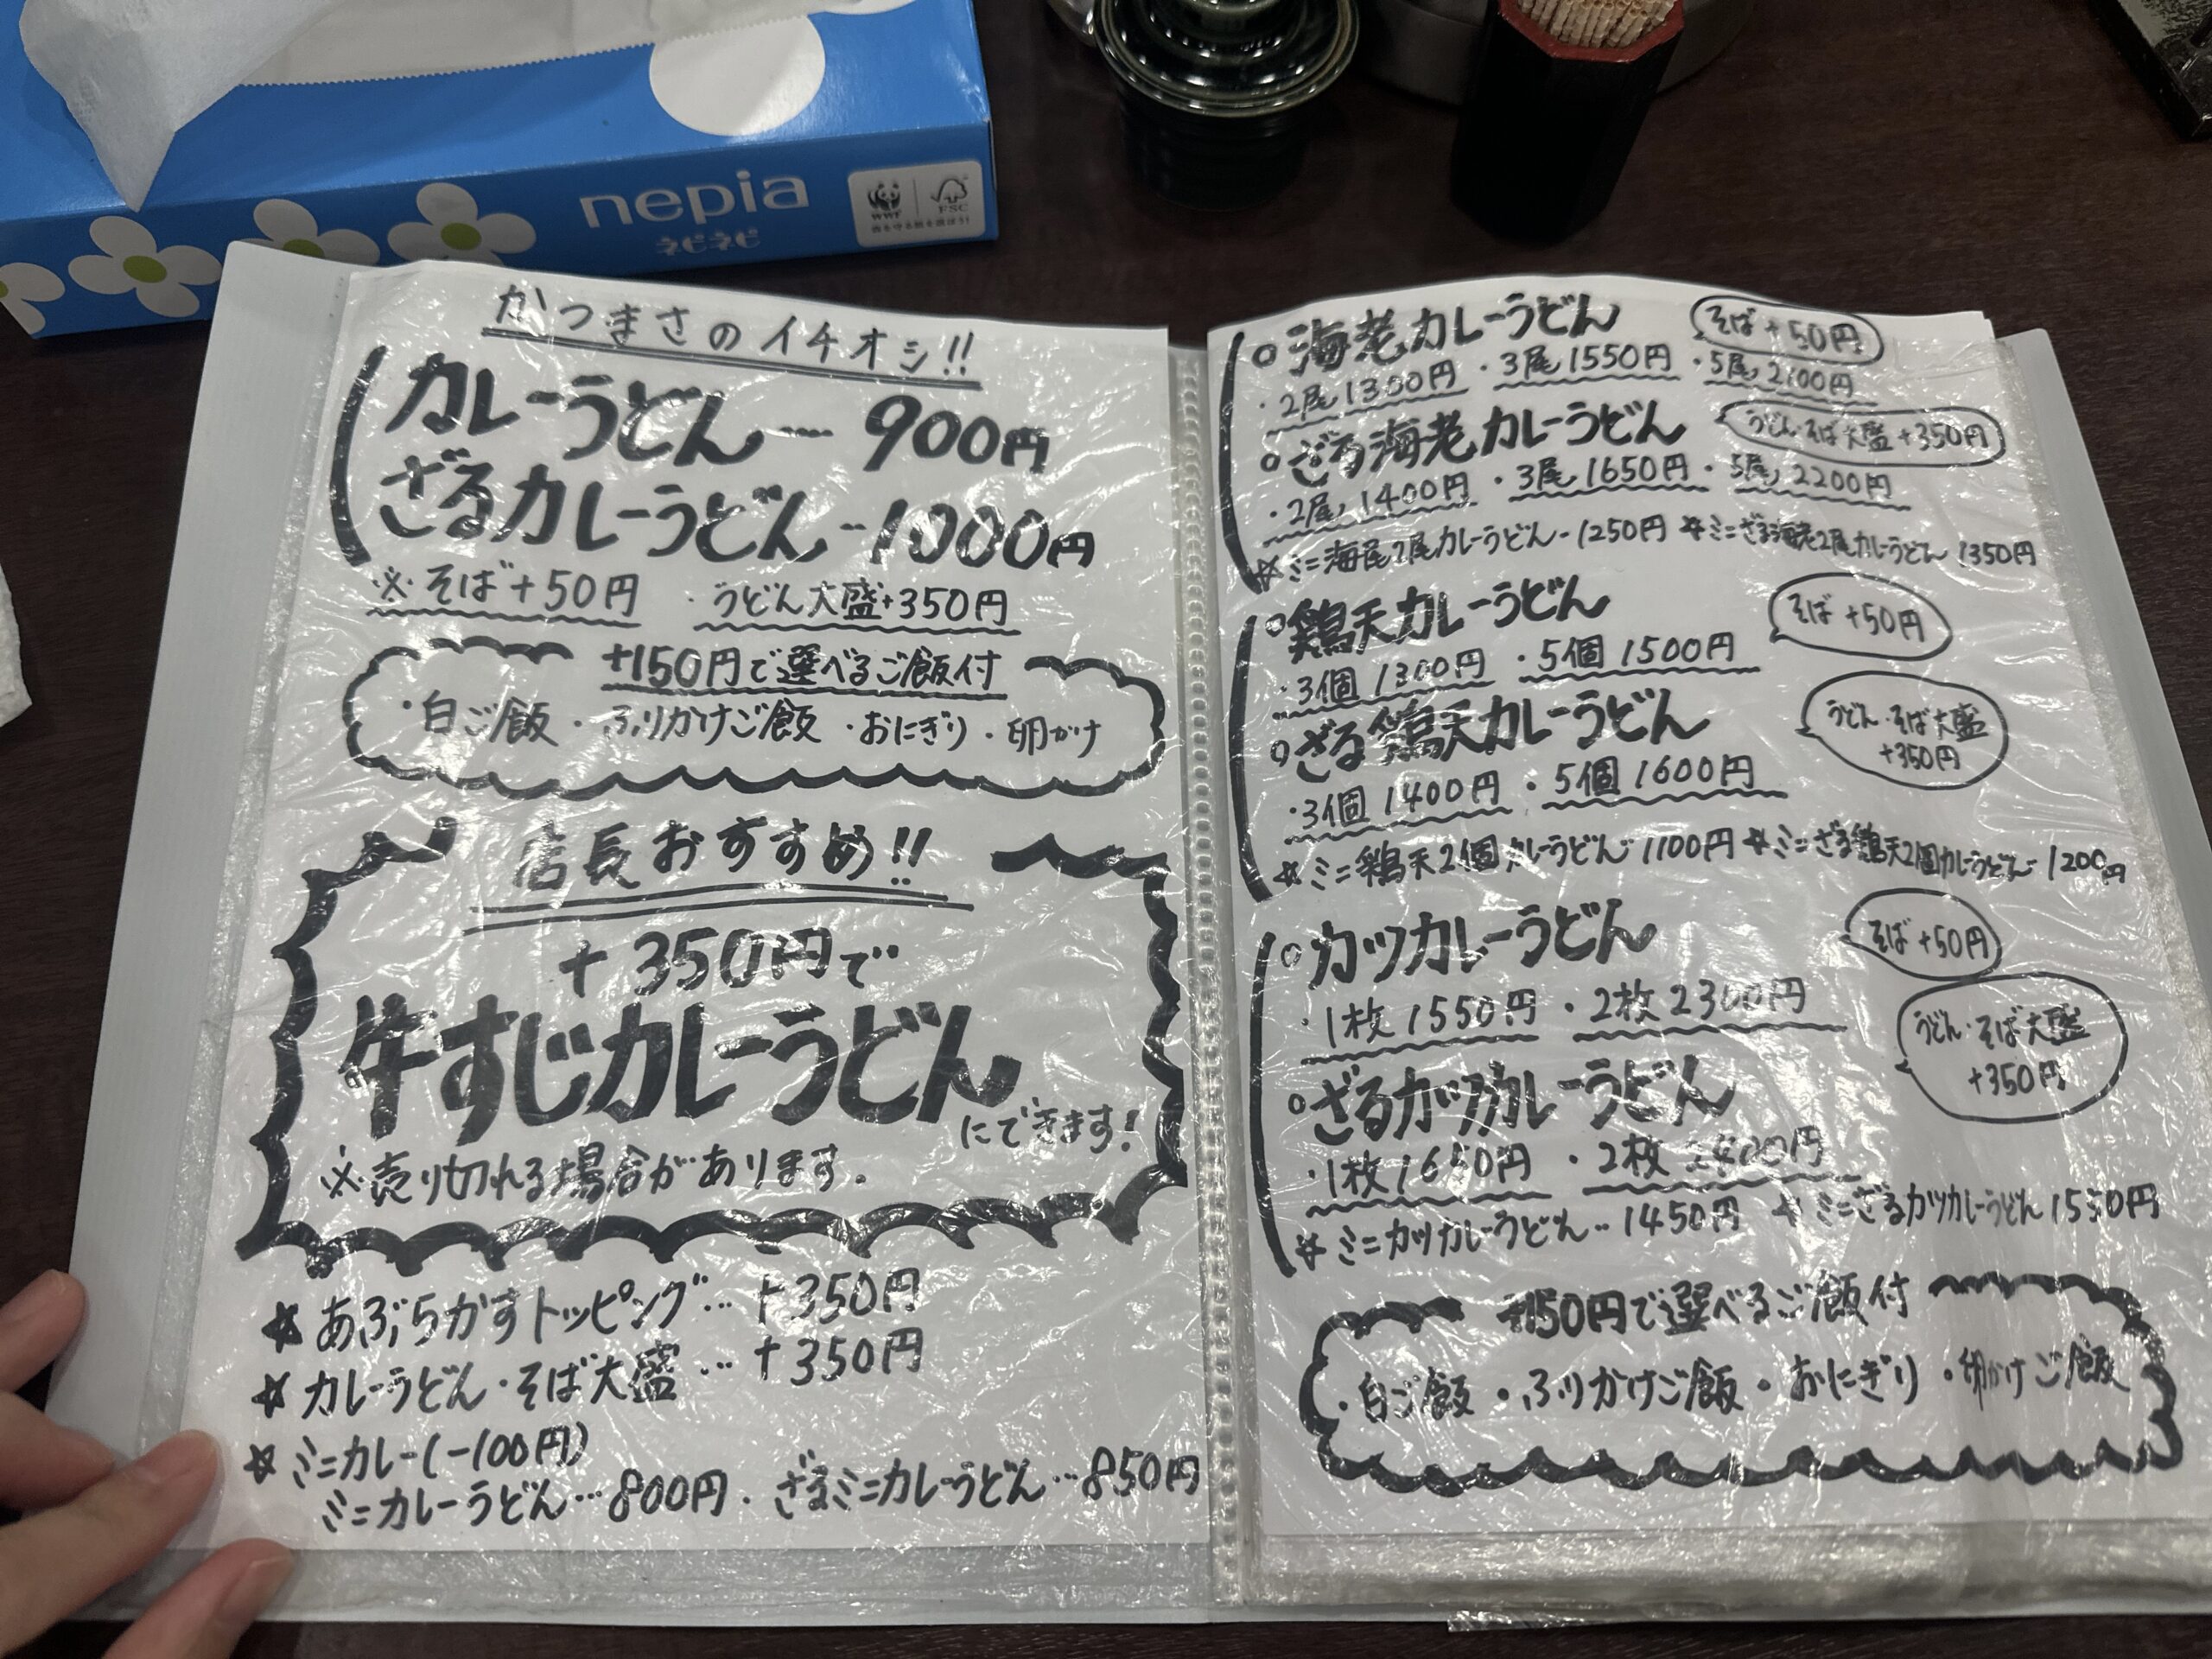 nepia
ネピネピ
WWF
FSC
かつまさのイチオシ!!
カレーうどん…900円
ざるカレーうどん…1000円
※そば+50円 ・うどん大盛+350円
+150円で選べるご飯付
・白ご飯・ふりかけご飯・おにぎり・卵かけ
店長おすすめ!!
+350円で
牛すじカレーうどん
にできます!
※売り切れる場合があります。
☆あぶらかすトッピング…+350円
☆カレーうどん・そば大盛…+350円
☆ミニカレー(-100円)
ミニカレーうどん…800円・ざるミニカレーうどん…850円
○海老カレーうどん
そば+50円
・2尾1300円・3尾1550円・5尾2100円
○ざる海老カレーうどん
うどん・そば大盛+350円
・2尾1400円・3尾1650円・5尾2200円
☆ミニ海尾2尾カレーうどん-1250円 ☆ミニざる海老2尾カレーうどん 1350円
○鶏天カレーうどん
そば+50円
・3個1300円・5個1500円
○ざる鶏天カレーうどん
うどん・そば大盛
+350円
・3個1400円・5個1600円
☆ミニ鶏天2個カレーうどん-1100円 ☆ミニざる鶏天2個カレーうどん-1200円
○カツカレーうどん
そば+50円
・1枚1550円・2枚2300円
うどん・そば大盛
+350円
○ざるカツカレーうどん
・1枚1650円・2枚2400円
☆ミニカツカレーうどん…1450円 ☆ミニざるカツカレーうどん1550円
+150円で選べるご飯付
・白ご飯・ふりかけご飯・おにぎり・卵かけご飯